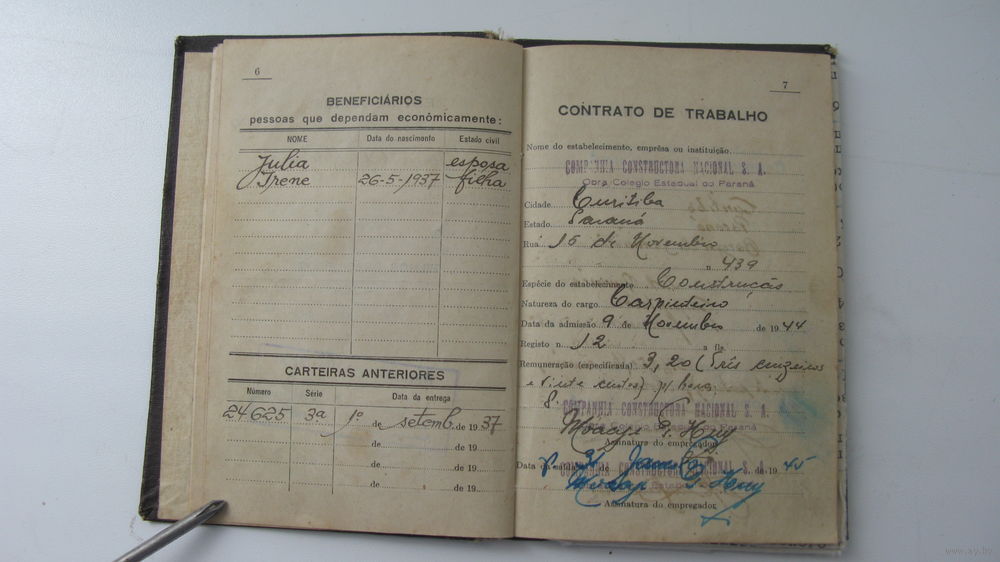 6
BENEFICIÁRIOS
pessoas que dependam económicamente:
NOME Data do nascimento Estado civil
Julia esposa
Irene 26-5-1937 filha
CARTEIRAS ANTERIORES
Número Série Data da entrega
24625 3ª 1º de setemb. de 1937
de de 19
de de 19
de de 19
7
CONTRATO DE TRABALHO
Nome do estabelecimento, emprêsa ou instituição
COMPANHIA CONSTRUCTORA NACIONAL S. A.
Obra Colegio Estadual do Paraná
Cidade Curitiba
Estado Paraná
Rua 15 de Novembro
n 439
Espécie do estabelecimento Construção
Natureza do cargo Carpinteiro
Data da admissão 9 de Novembro de 1944
Registo n. 12 a fls.
Remuneração (especificada) 3,20 (Três cruzeiros
e vinte centos) p/ hora
COMPANHIA CONSTRUCTORA NACIONAL S. A.
Obra Colegio Estadual do Paraná
Assinatura do empregador
Data da saída 31 de de 1945
COMPANHIA CONSTRUCTORA NACIONAL S. A.
Assinatura do empregador
www.ay.by